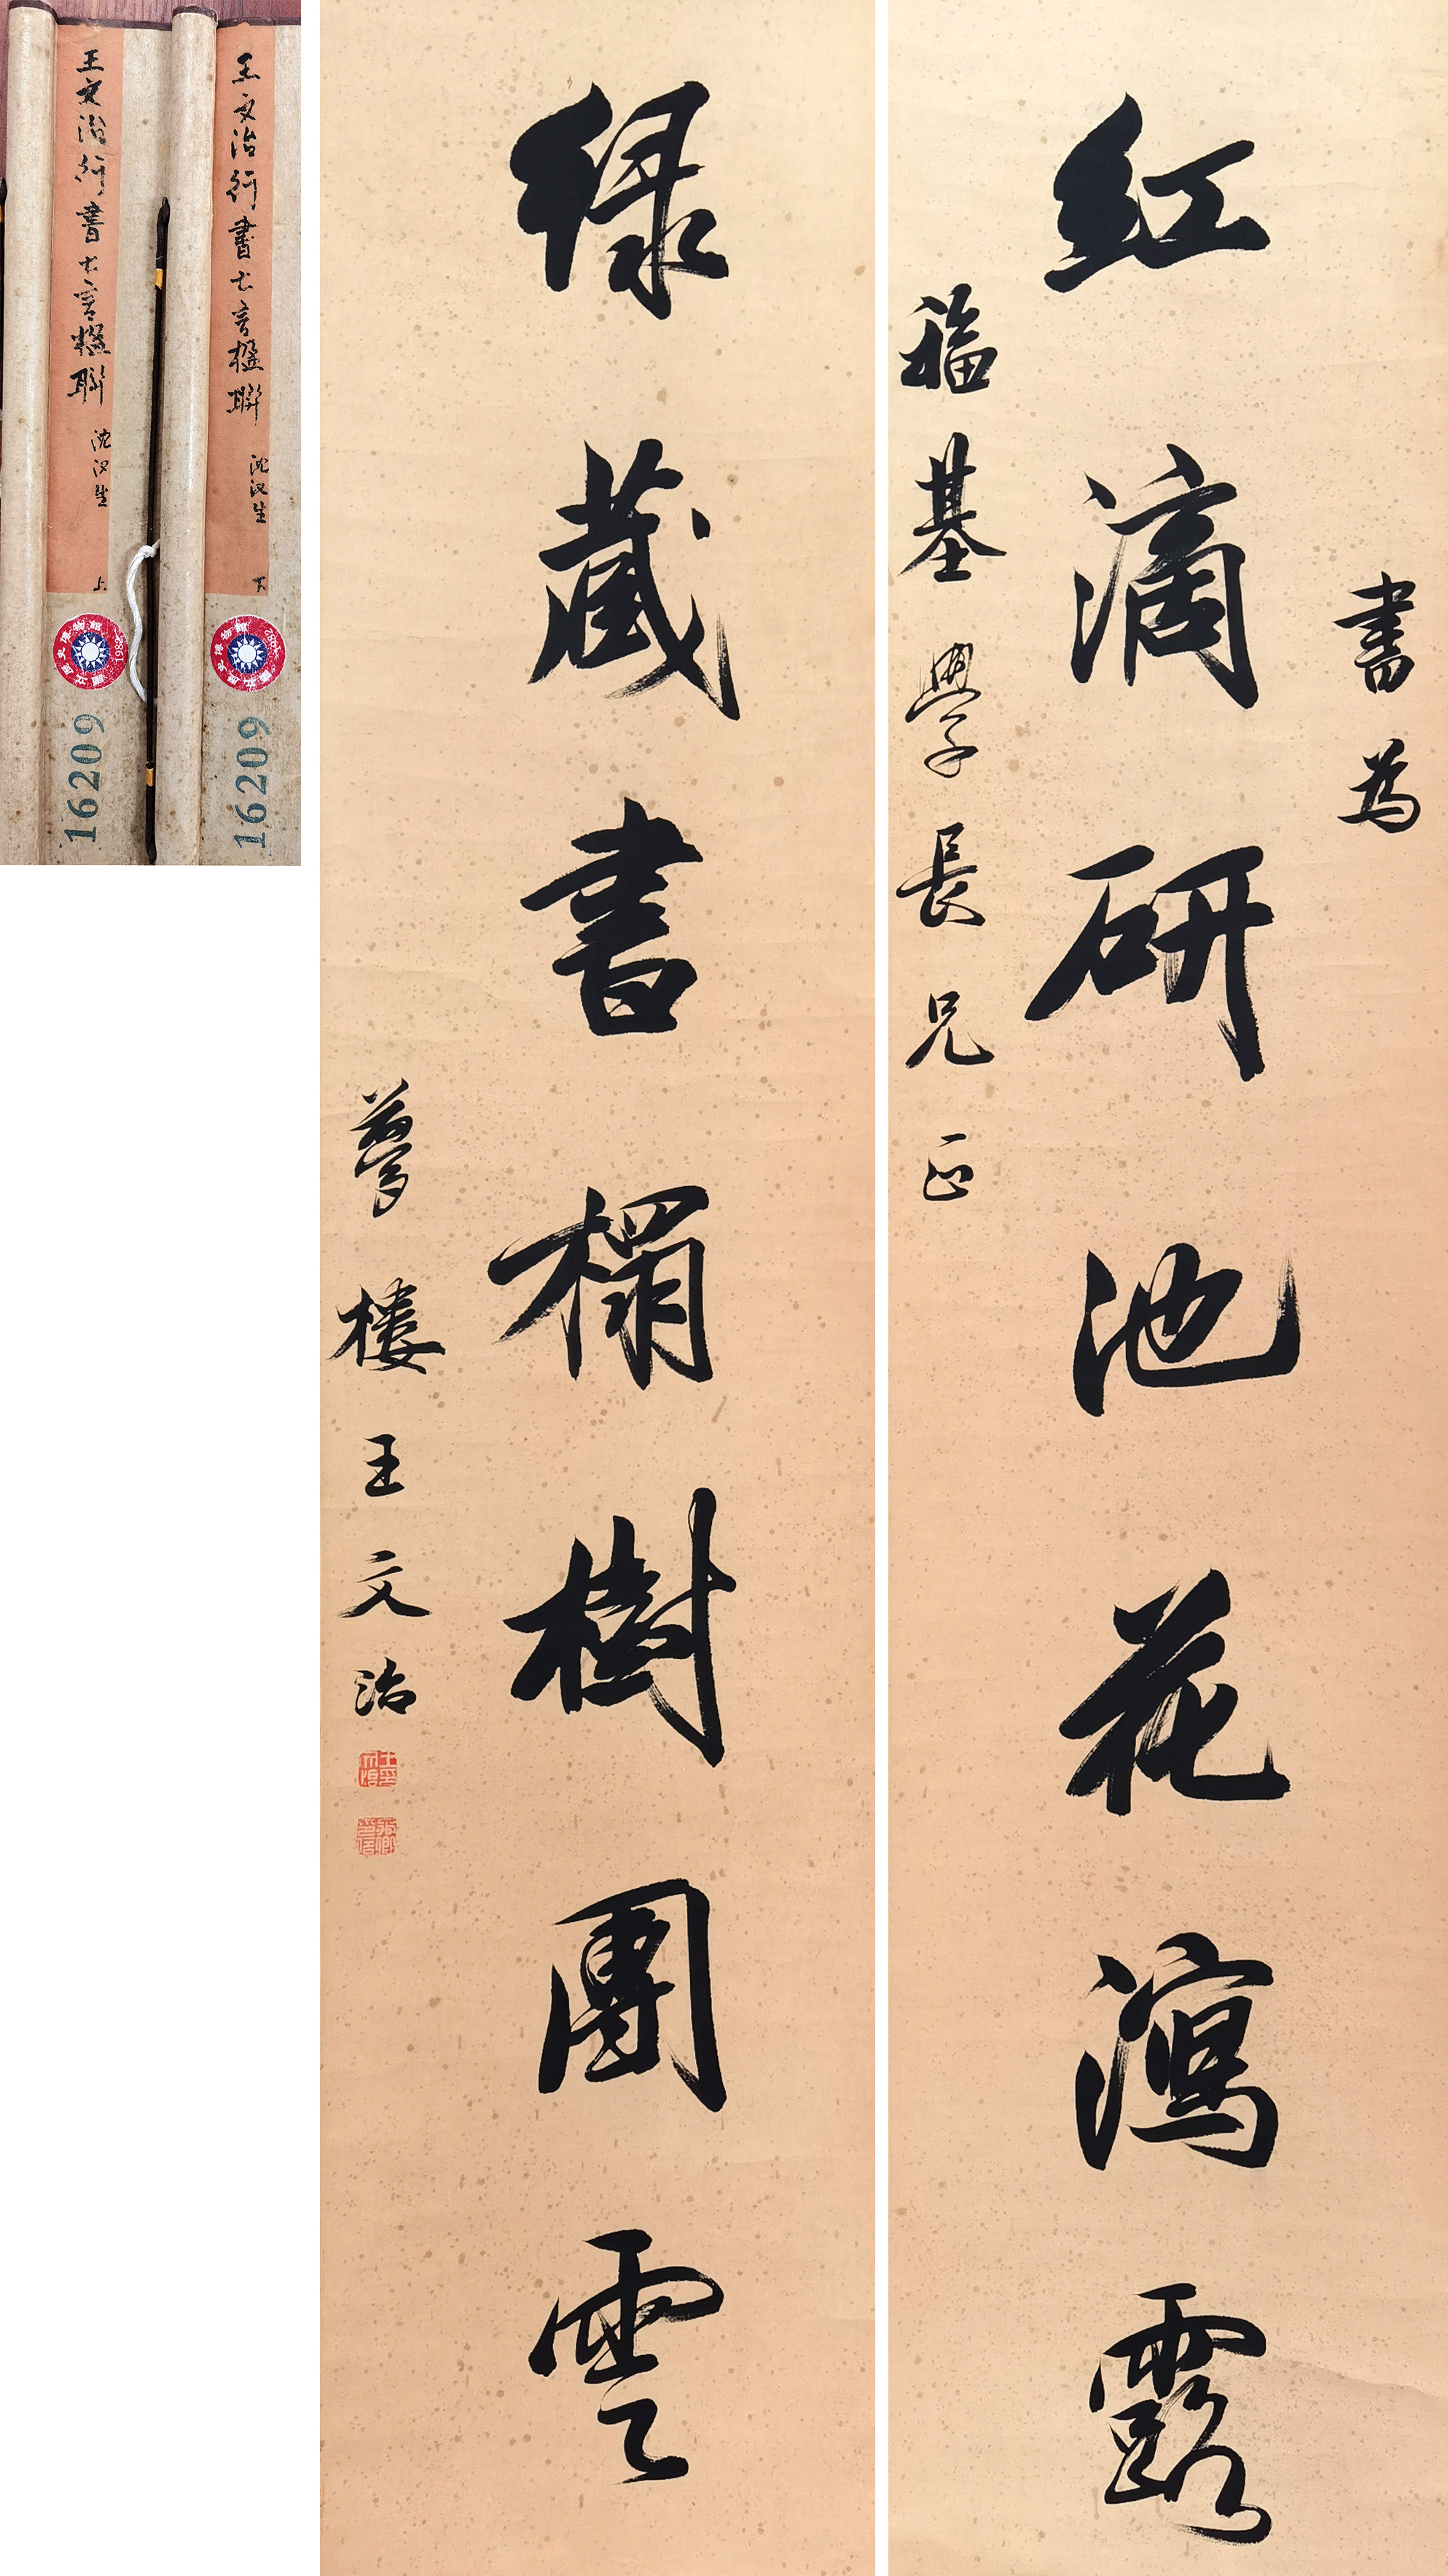 書為
紅滴研池花瀉露
福基學長兄正
綠藏書榻樹團雲
夢樓王文治
王印文治
王文治行書七言楹聯 沈汉生 下
國立歷史博物館 1982
16209
王文治行書七言楹聯 沈汉生 上
國立歷史博物館 1982
16209